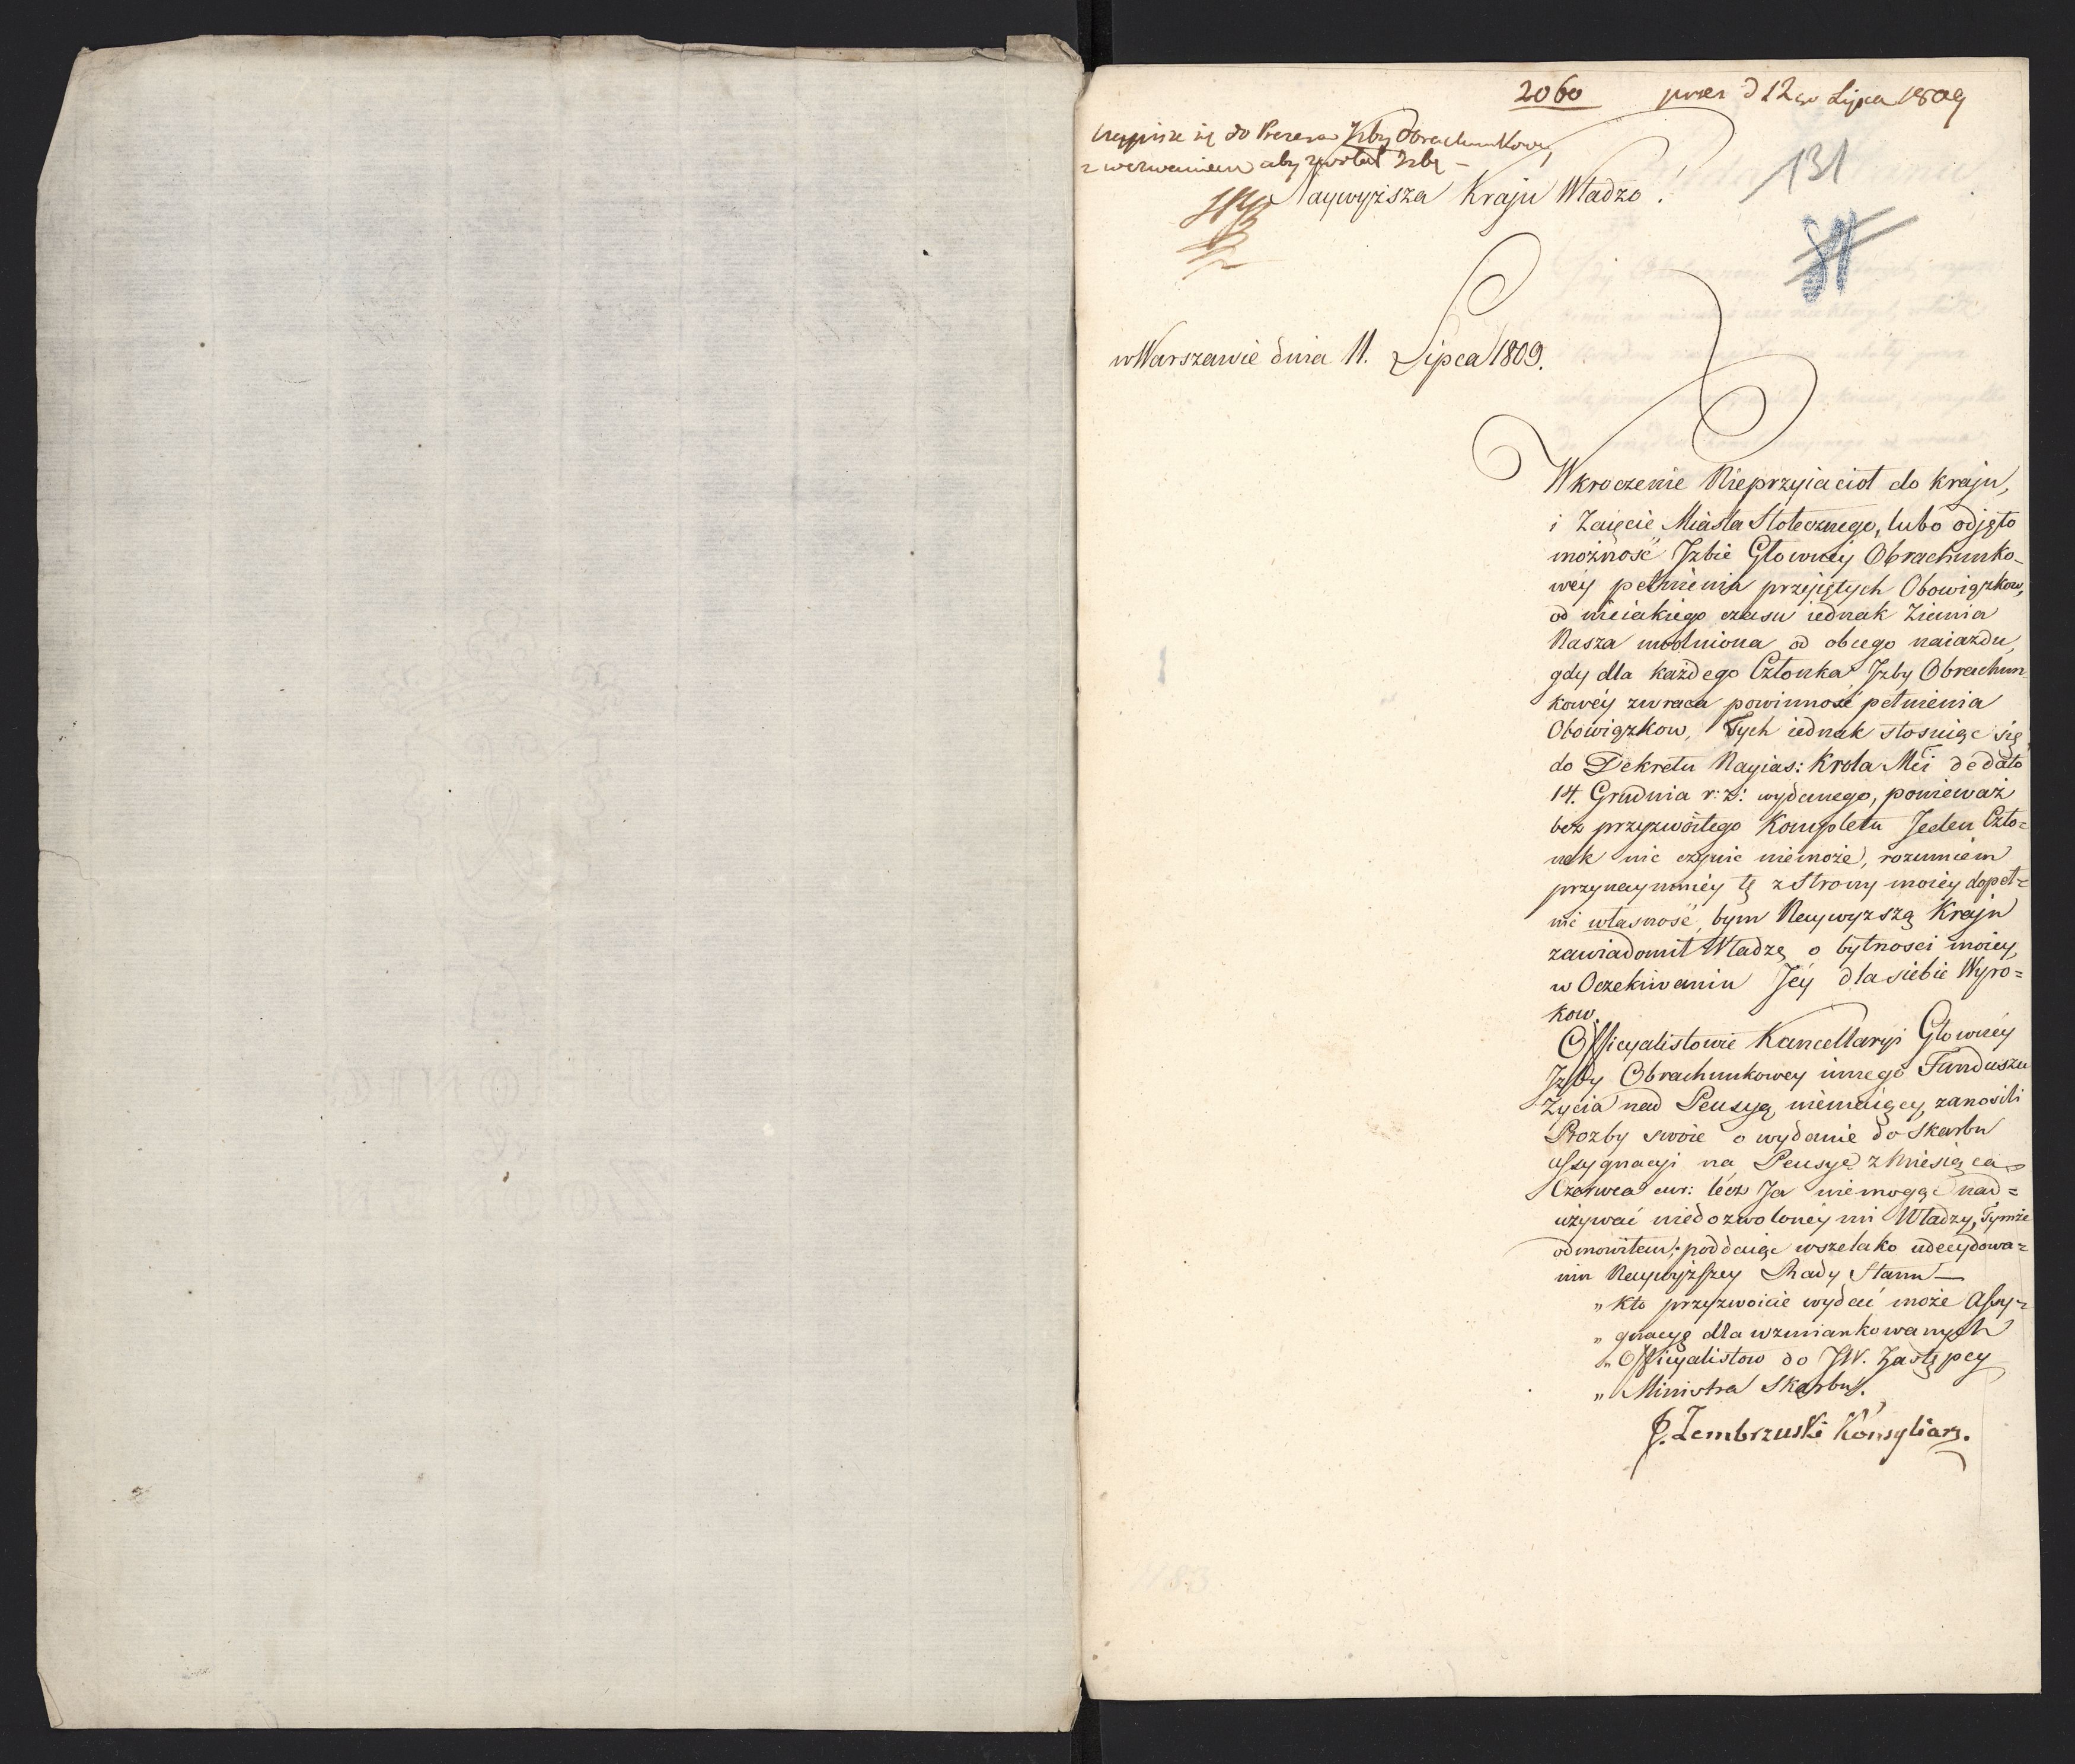 2060 prez d 12go Lipca 1809
wypisze się do Prezesa Izby Obrachunkowey
z wezwaniem aby zwołał Izbę –
131
Naywyższa Kraju Władzo!
w Warszawie dnia 11. Lipca 1809.
Wkroczenie Nieprzyiacioł do kraju,
i Zaięcie Miasta Stołecznego, lubo odjęto
możność Jzbie Głowney Obrachunko-
wéy pełnienia przejętych Obowiązkow,
od nieiakiego czasu iednak Ziemia
Nasza uwolniona od obcego naiazdu,
gdy dla każdego Członka Jzby Obrachun-
kowéy zwraca powinność pełnienia
Obowiązkow, Tych iednak stosuiąc się
do Dekretu Nayias: Krola Mci de dato
14. Grudnia r: z: wydanego, ponieważ
bez przyzwoitego Kompletu Jeden Czło=
nek nic czynić niemoże, rozumiem
przynaymniéy tę z Strony moiéy dopeł=
nić własność, bym Naywyzszą Kraju
zawiadomił Władzę o bytnosci moiéy,
w Oczekiwaniu Jéy dla siebie Wyro=
kow.
Officyalistowie Kancellaryi Głownéy
Jzby Obrachunkowey innego Funduszu
Życia nad Pensyą niemaiący, zanosili
Prozby swoie o wydanie do Skarbu
assygnacyi na Pensyę z Miesiąca
Czerwca cur: lécz Ja niemogąc nad=
używać niedozwolonéy mi Władzy, Tymże
odmowiłem; poddaiąc wszelako udecydowa=
niu Naywyższey Rady Stanu —
„ Kto przyzwoicie wydać może Assy=
„ gnacyę dla wzmiankowanych
„ Officyalistow do JW. Zastępcy
„ Ministra Skarbu.
P. Zembrzuski Konsyliarz.